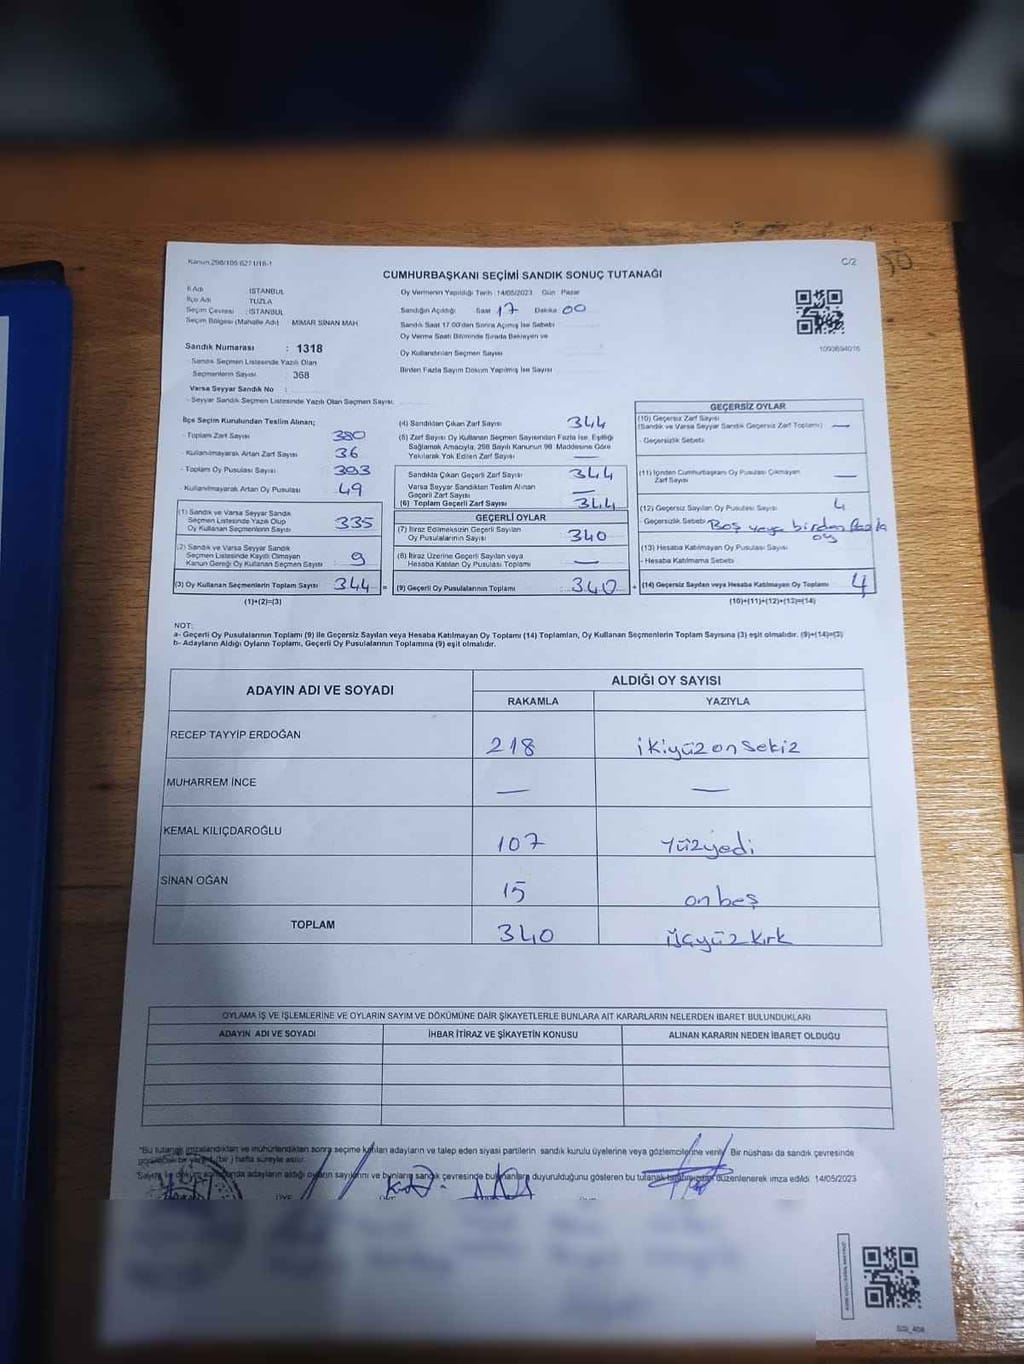 Kanun:298/105 6271/18-1
C/2
CUMHURBAŞKANI SEÇİMİ SANDIK SONUÇ TUTANAĞI
İl Adı İSTANBUL
İlçe Adı TUZLA
Seçim Çevresi : İSTANBUL
Seçim Bölgesi (Mahalle Adı) : MİMAR SİNAN MAH
Sandık Numarası : 1318
- Sandık Seçmen Listesinde Yazılı Olan
Seçmenlerin Sayısı 368
Varsa Seyyar Sandık No :
- Seyyar Sandık Seçmen Listesinde Yazılı Olan Seçmen Sayısı:
Oy Vermenin Yapıldığı Tarih :14/05/2023 Gün Pazar
Sandığın Açıldığı Saat 17 Dakika 00
Sandık Saat 17.00'den Sonra Açılmış İse Sebebi
Oy Verme Saati Bitiminde Sırada Bekleyen ve
Oy Kullandırılan Seçmen Sayısı
Birden Fazla Sayım Döküm Yapılmış İse Sayısı
İlçe Seçim Kurulundan Teslim Alınan;
- Toplam Zarf Sayısı 380
- Kullanılmayarak Artan Zarf Sayısı 36
- Toplam Oy Pusulası Sayısı 393
- Kullanılmayarak Artan Oy Pusulası 49
(1) Sandık ve Varsa Seyyar Sandık
Seçmen Listesinde Yazılı Olup
Oy Kullanan Seçmenlerin Sayısı 335
(2) Sandık ve Varsa Seyyar Sandık
Seçmen Listesinde Kayıtlı Olmayan
Kanun Gereği Oy Kullanan Seçmen Sayısı 9
(3) Oy Kullanan Seçmenlerin Toplam Sayısı 344 =
(1)+(2)=(3)
(4) Sandıktan Çıkan Zarf Sayısı 344
(5) Zarf Sayısı Oy Kullanan Seçmen Sayısından Fazla İse, Eşitliği
Sağlamak Amacıyla; 298 Sayılı Kanunun 98. Maddesine Göre
Yakılarak Yok Edilen Zarf Sayısı —
Sandıkta Çıkan Geçerli Zarf Sayısı 344
Varsa Seyyar Sandıktan Teslim Alınan
Geçerli Zarf Sayısı —
(6) Toplam Geçerli Zarf Sayısı 344
GEÇERLİ OYLAR
(7) İtiraz Edilmeksizin Geçerli Sayılan
Oy Pusulalarının Sayısı 340
(8) İtiraz Üzerine Geçerli Sayılan veya
Hesaba Katılan Oy Pusulası Toplamı —
(9) Geçerli Oy Pusulalarının Toplamı : 340 +
GEÇERSİZ OYLAR
(10) Geçersiz Zarf Sayısı
(Sandık ve Varsa Seyyar Sandık Geçersiz Zarf Toplamı) —
- Geçersizlik Sebebi
(11) İçinden Cumhurbaşkanı Oy Pusulası Çıkmayan
Zarf Sayısı —
(12) Geçersiz Sayılan Oy Pusulası Sayısı 4
- Geçersizlik Sebebi Boş veya birden fazla
oy
(13) Hesaba Katılmayan Oy Pusulası Sayısı
- Hesaba Katılmama Sebebi
(14) Geçersiz Sayılan veya Hesaba Katılmayan Oy Toplamı 4
(10)+(11)+(12)+(13)=(14)
NOT:
a- Geçerli Oy Pusulalarının Toplamı (9) ile Geçersiz Sayılan veya Hesaba Katılmayan Oy Toplamı (14) Toplamları, Oy Kullanan Seçmenlerin Toplam Sayısına (3) eşit olmalıdır. (9)+(14)=(3)
b- Adayların Aldığı Oyların Toplamı, Geçerli Oy Pusulalarının Toplamına (9) eşit olmalıdır.
ADAYIN ADI VE SOYADI
ALDIĞI OY SAYISI
RAKAMLA YAZIYLA
RECEP TAYYİP ERDOĞAN 218 ikiyüzonsekiz
MUHARREM İNCE — —
KEMAL KILIÇDAROĞLU 107 Yüzyedi
SİNAN OĞAN 15 onbeş
TOPLAM 340 üçyüzkırk
OYLAMA İŞ VE İŞLEMLERİNE VE OYLARIN SAYIM VE DÖKÜMÜNE DAİR ŞİKAYETLERLE BUNLARA AİT KARARLARIN NELERDEN İBARET BULUNDUKLARI
ADAYIN ADI VE SOYADI İHBAR İTİRAZ VE ŞİKAYETİN KONUSU ALINAN KARARIN NEDEN İBARET OLDUĞU
*Bu tutanak imzalandıktan ve mühürlendikten sonra seçime katılan adayların ve talep eden siyasi partilerin sandık kurulu üyelerine veya gözlemcilerine verilir. Bir nüshası da sandık çevresinde
(bir) hafta süreyle asılır.
adayların aldığı oyların sayılarını ve bunların sandık çevresinde bulunanlara duyurulduğunu gösteren bu tutanak düzenlenerek imza edildi. 14/05/2023